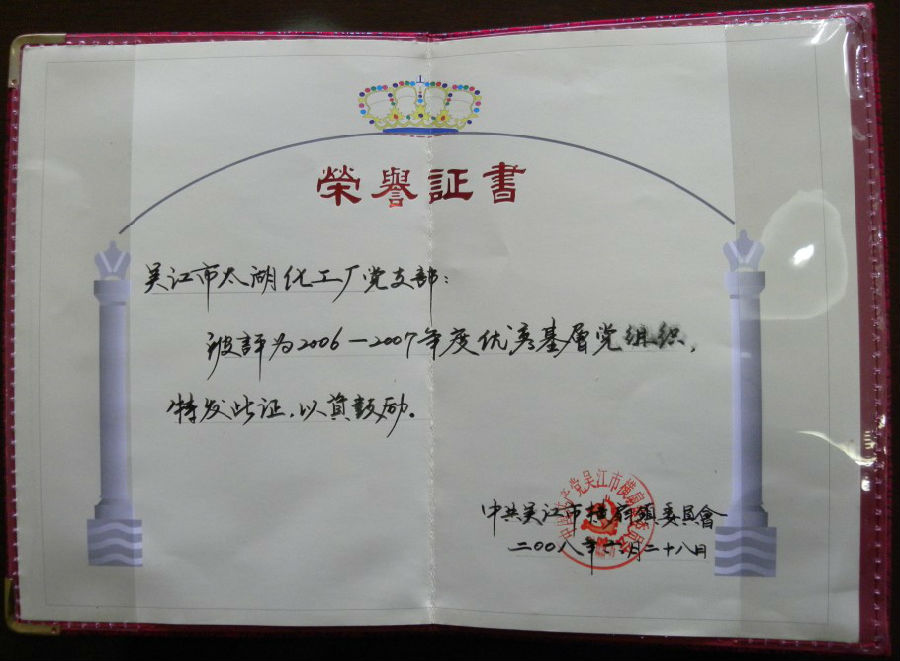 榮譽証書
吴江市太湖化工厂党支部：
被評为2006—2007年度优秀基层党组织，
特发此证，以資鼓励。
中共吴江市横扇鎮委員會
二00八年六月二十八日